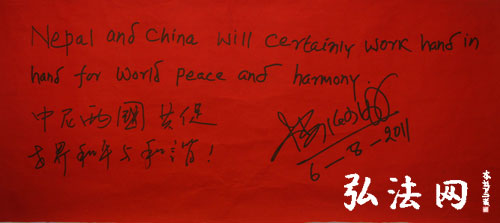 Nepal and China will certainly work hand in
hand for world peace and harmony.
中尼两國共促
世界和平与和谐！
6-8-2011
弘法网